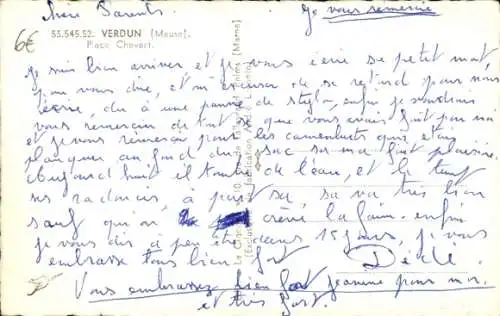 Chers Parents
Je vous remercie
6€
55.545.52. VERDUN (Meuse).
Place Chevert.
Je suis bien arriver et je vous écrie se petit mot,
pour vous dire, et m'excuser de se retard pour vous
écrire, du à une panne de stylo, enfin je voudrais
vous remercier de tout ce que vous avais fait pour moi
et je vous remercie pour les camemberts qui était
planquer au fond du sac sa ma fait plaisir
Aujourd'hui il tombe de l'eau, et le temps
se radouci, à part sa, sa va très bien
sauf qu'on crève la faim. enfin
je vous dis à peu être dans 15 jours, je vous
embrasse tous bien fort Dédé.
Vous embrasserez bien fort Jeannine pour moi.
et très fort.